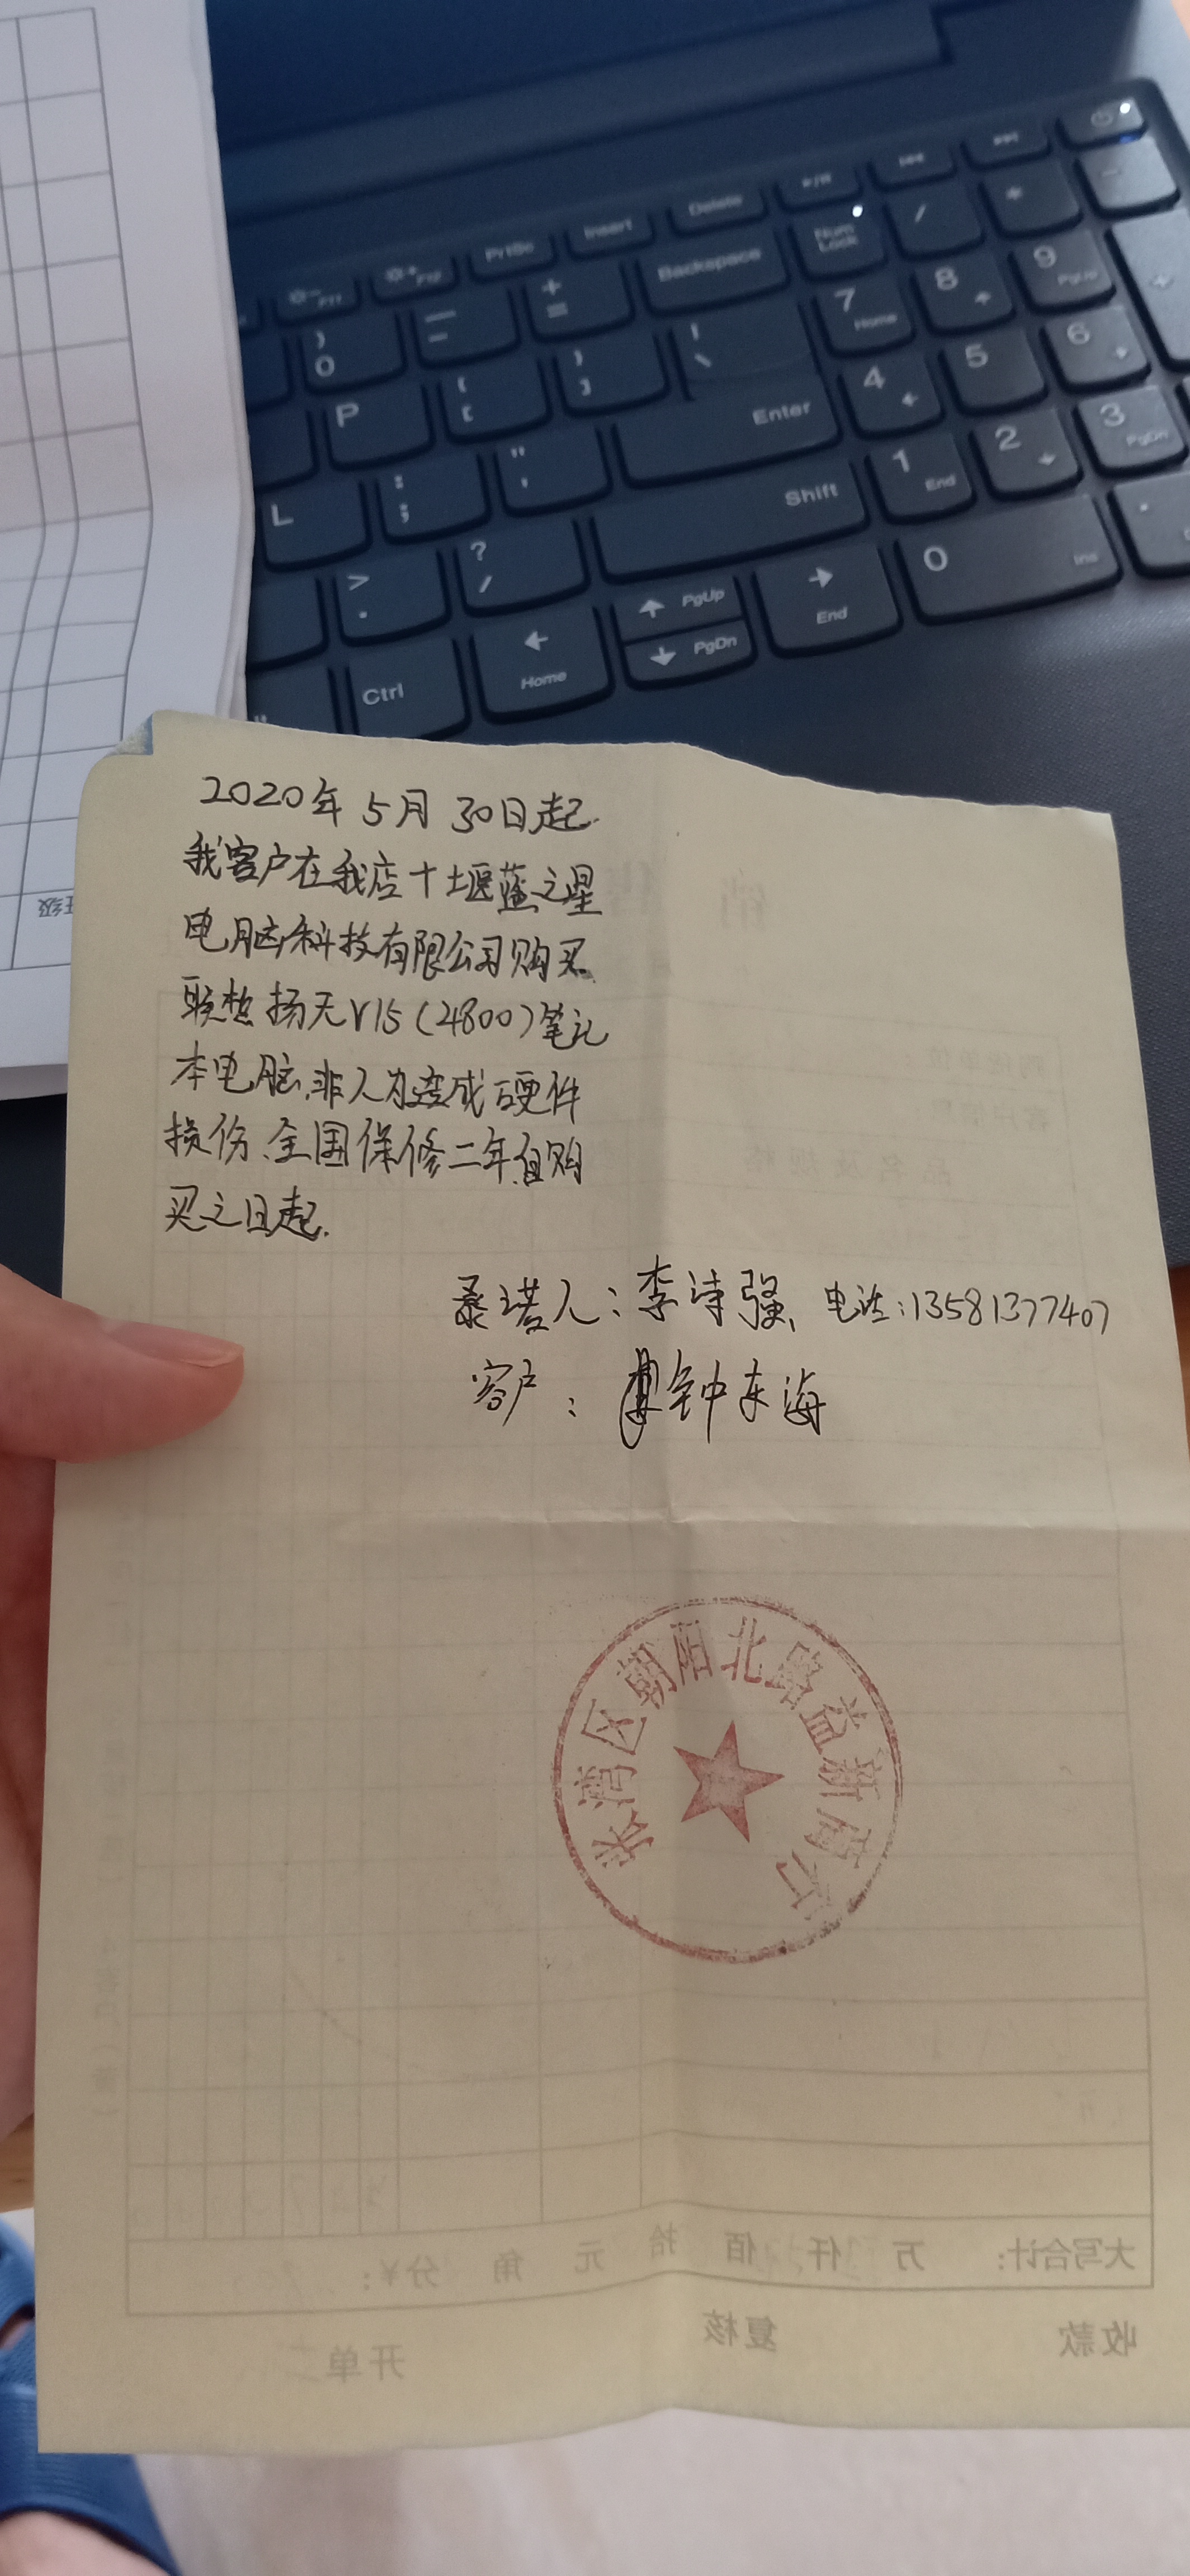 PrtSc Insert Delete
F11 F12
) 0 — - + = Backspace Num Lock / * -
P { [ } ] | \ 7 Home 8 9 PgUp
L : ; " ' Enter 4 5 6
> . ? / Shift 1 End 2 3 PgDn
Ctrl Home PgUp PgDn End 0 Ins .
班级
2020年5月30日起
我客户在我店十堰蓝之星
电脑科技有限公司购买
联想扬天V15(4800)笔记
本电脑,非人为造成硬件
损伤、全国保修二年,自购
买之日起.
承诺人:李诗强、电话:13581377407
客户:钟东海
张湾区朝阳北路益新商行
大写合计: 万 仟 佰 拾 元 角 分 ¥:
收款 复核 开单